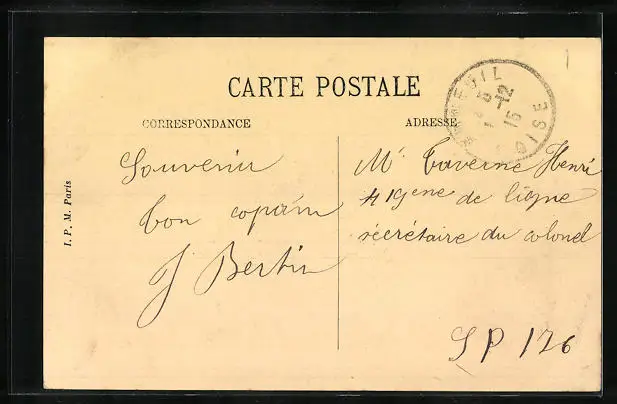 CARTE POSTALE
CORRESPONDANCE
ADRESSE
EUIL
5 -12
15
OISE
Souvenir
bon copain
J Bertin
Mr Taverne Henri
419eme de ligne
secrétaire du colonel
SP 126
I. P. M. Paris